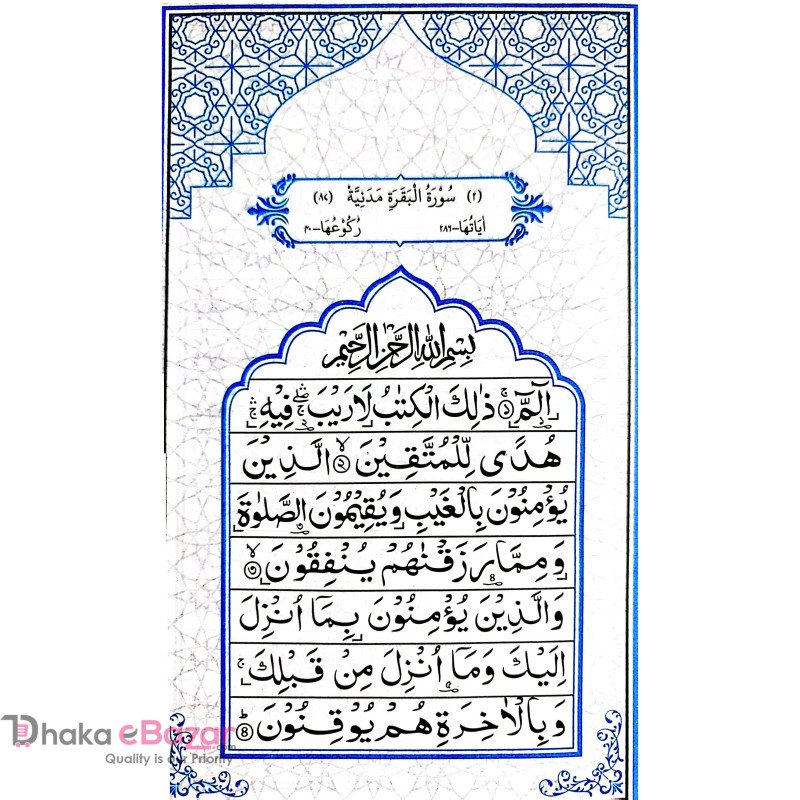 (٢) سُوْرَةُ الْبَقَرَةِ مَدَنِيَّةٌ (٨٧)
اٰيَاتُهَا-٢٨٦ رُكُوْعُهَا-٤٠
بِسْمِ اللهِ الرَّحْمٰنِ الرَّحِيْمِ
الٓمّٓ ۚ﴿١﴾ ذٰلِكَ الْكِتٰبُ لَا رَيْبَ ۛۖۚ فِيْهِ ۛۚ
هُدًى لِّلْمُتَّقِيْنَ ۙ﴿٢﴾ الَّذِيْنَ
يُؤْمِنُوْنَ بِالْغَيْبِ وَيُقِيْمُوْنَ الصَّلٰوةَ
وَمِمَّا رَزَقْنٰهُمْ يُنْفِقُوْنَ ۙ﴿٣﴾
وَالَّذِيْنَ يُؤْمِنُوْنَ بِمَآ اُنْزِلَ
اِلَيْكَ وَمَآ اُنْزِلَ مِنْ قَبْلِكَ ۚ
وَبِالْاٰخِرَةِ هُمْ يُوْقِنُوْنَ ؕ﴿٤﴾
Dhaka eBazar.com
Quality is our Priority